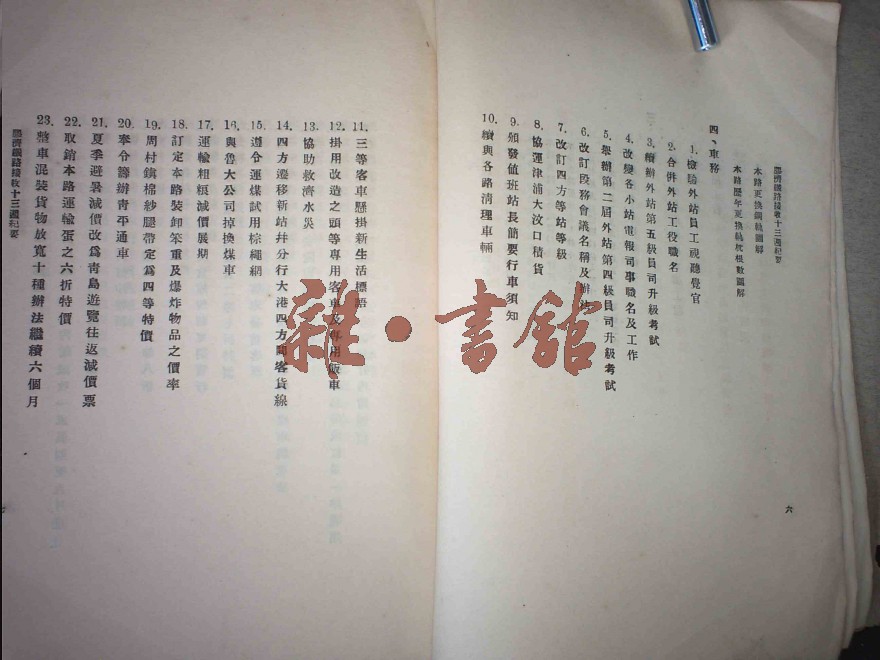 膠濟鐵路接收十三週紀要
本路更換鋼軌圖解
本路歷年更換軌枕根數圖解
四、車務
1. 檢驗外站員工視聽覺官
2. 合併外站工役職名
3. 續辦外站第五級員司升級考試
4. 改變各小站電報司事職名及工作
5. 舉辦第二屆外站第四級員司升級考試
6. 改訂段務會議名稱及辦法
7. 改訂四方等站等級
8. 協運津浦大汶口積貨
9. 頒發值班站長簡要行車須知
10. 續與各路清理車輛
六
11. 三等客車懸掛新生活標語
12. 掛用改造之頭等專用客車及專用飯車
13. 協助救濟水災
14. 四方遷移新站幷分行大港四方間客貨線
15. 遵令運煤試用棕繩網
16. 與魯大公司掉換煤車
17. 運輸粗瓶減價展期
18. 訂定本路裝卸笨重及爆炸物品之價率
19. 周村鎮棉紗腿帶定爲四等特價
20. 奉令籌辦靑平通車
21. 夏季避暑減價改爲靑島遊覽往返減價票
22. 取銷本路運輸蛋之六折特價
23. 整車混裝貨物放寬十種辦法繼續六個月
膠濟鐵路接收十三週紀要
雜·書館